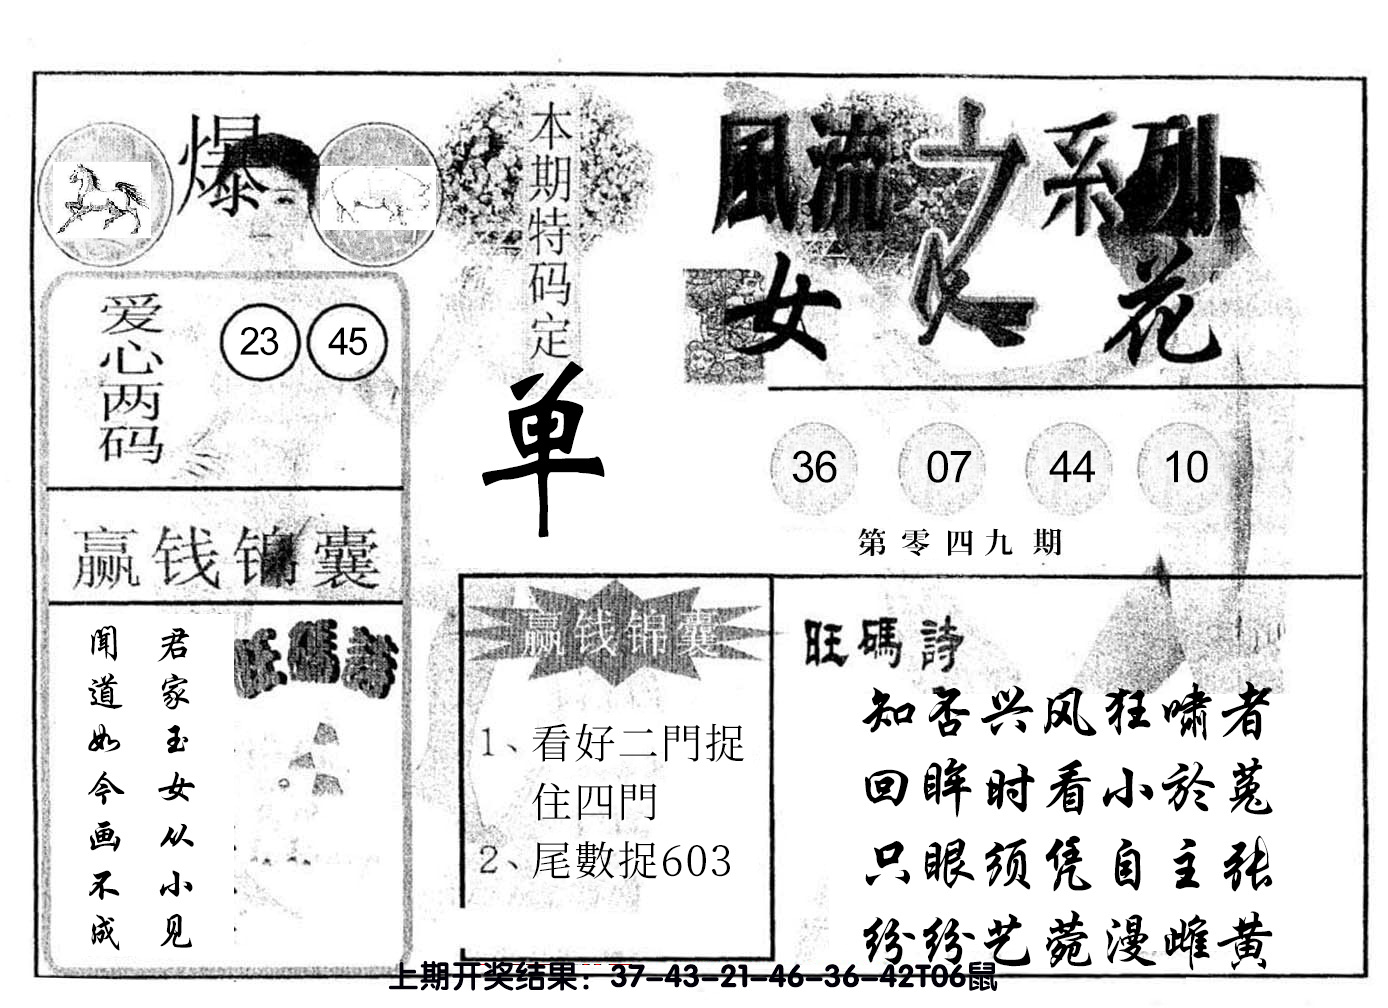 爆
本期特码定
单
風流之系列
女人花
爱心两码
23 45
36 07 44 10
第零四九期
赢钱锦囊
君家玉女从小见
闻道如今画不成
旺碼詩
赢钱锦囊
1、看好二門捉
住四門
2、尾數捉603
旺碼詩
知否兴风狂啸者
回眸时看小於菟
只眼须凭自主张
纷纷艺苑漫雌黄
上期开奖结果：37-43-21-46-36-42T06鼠